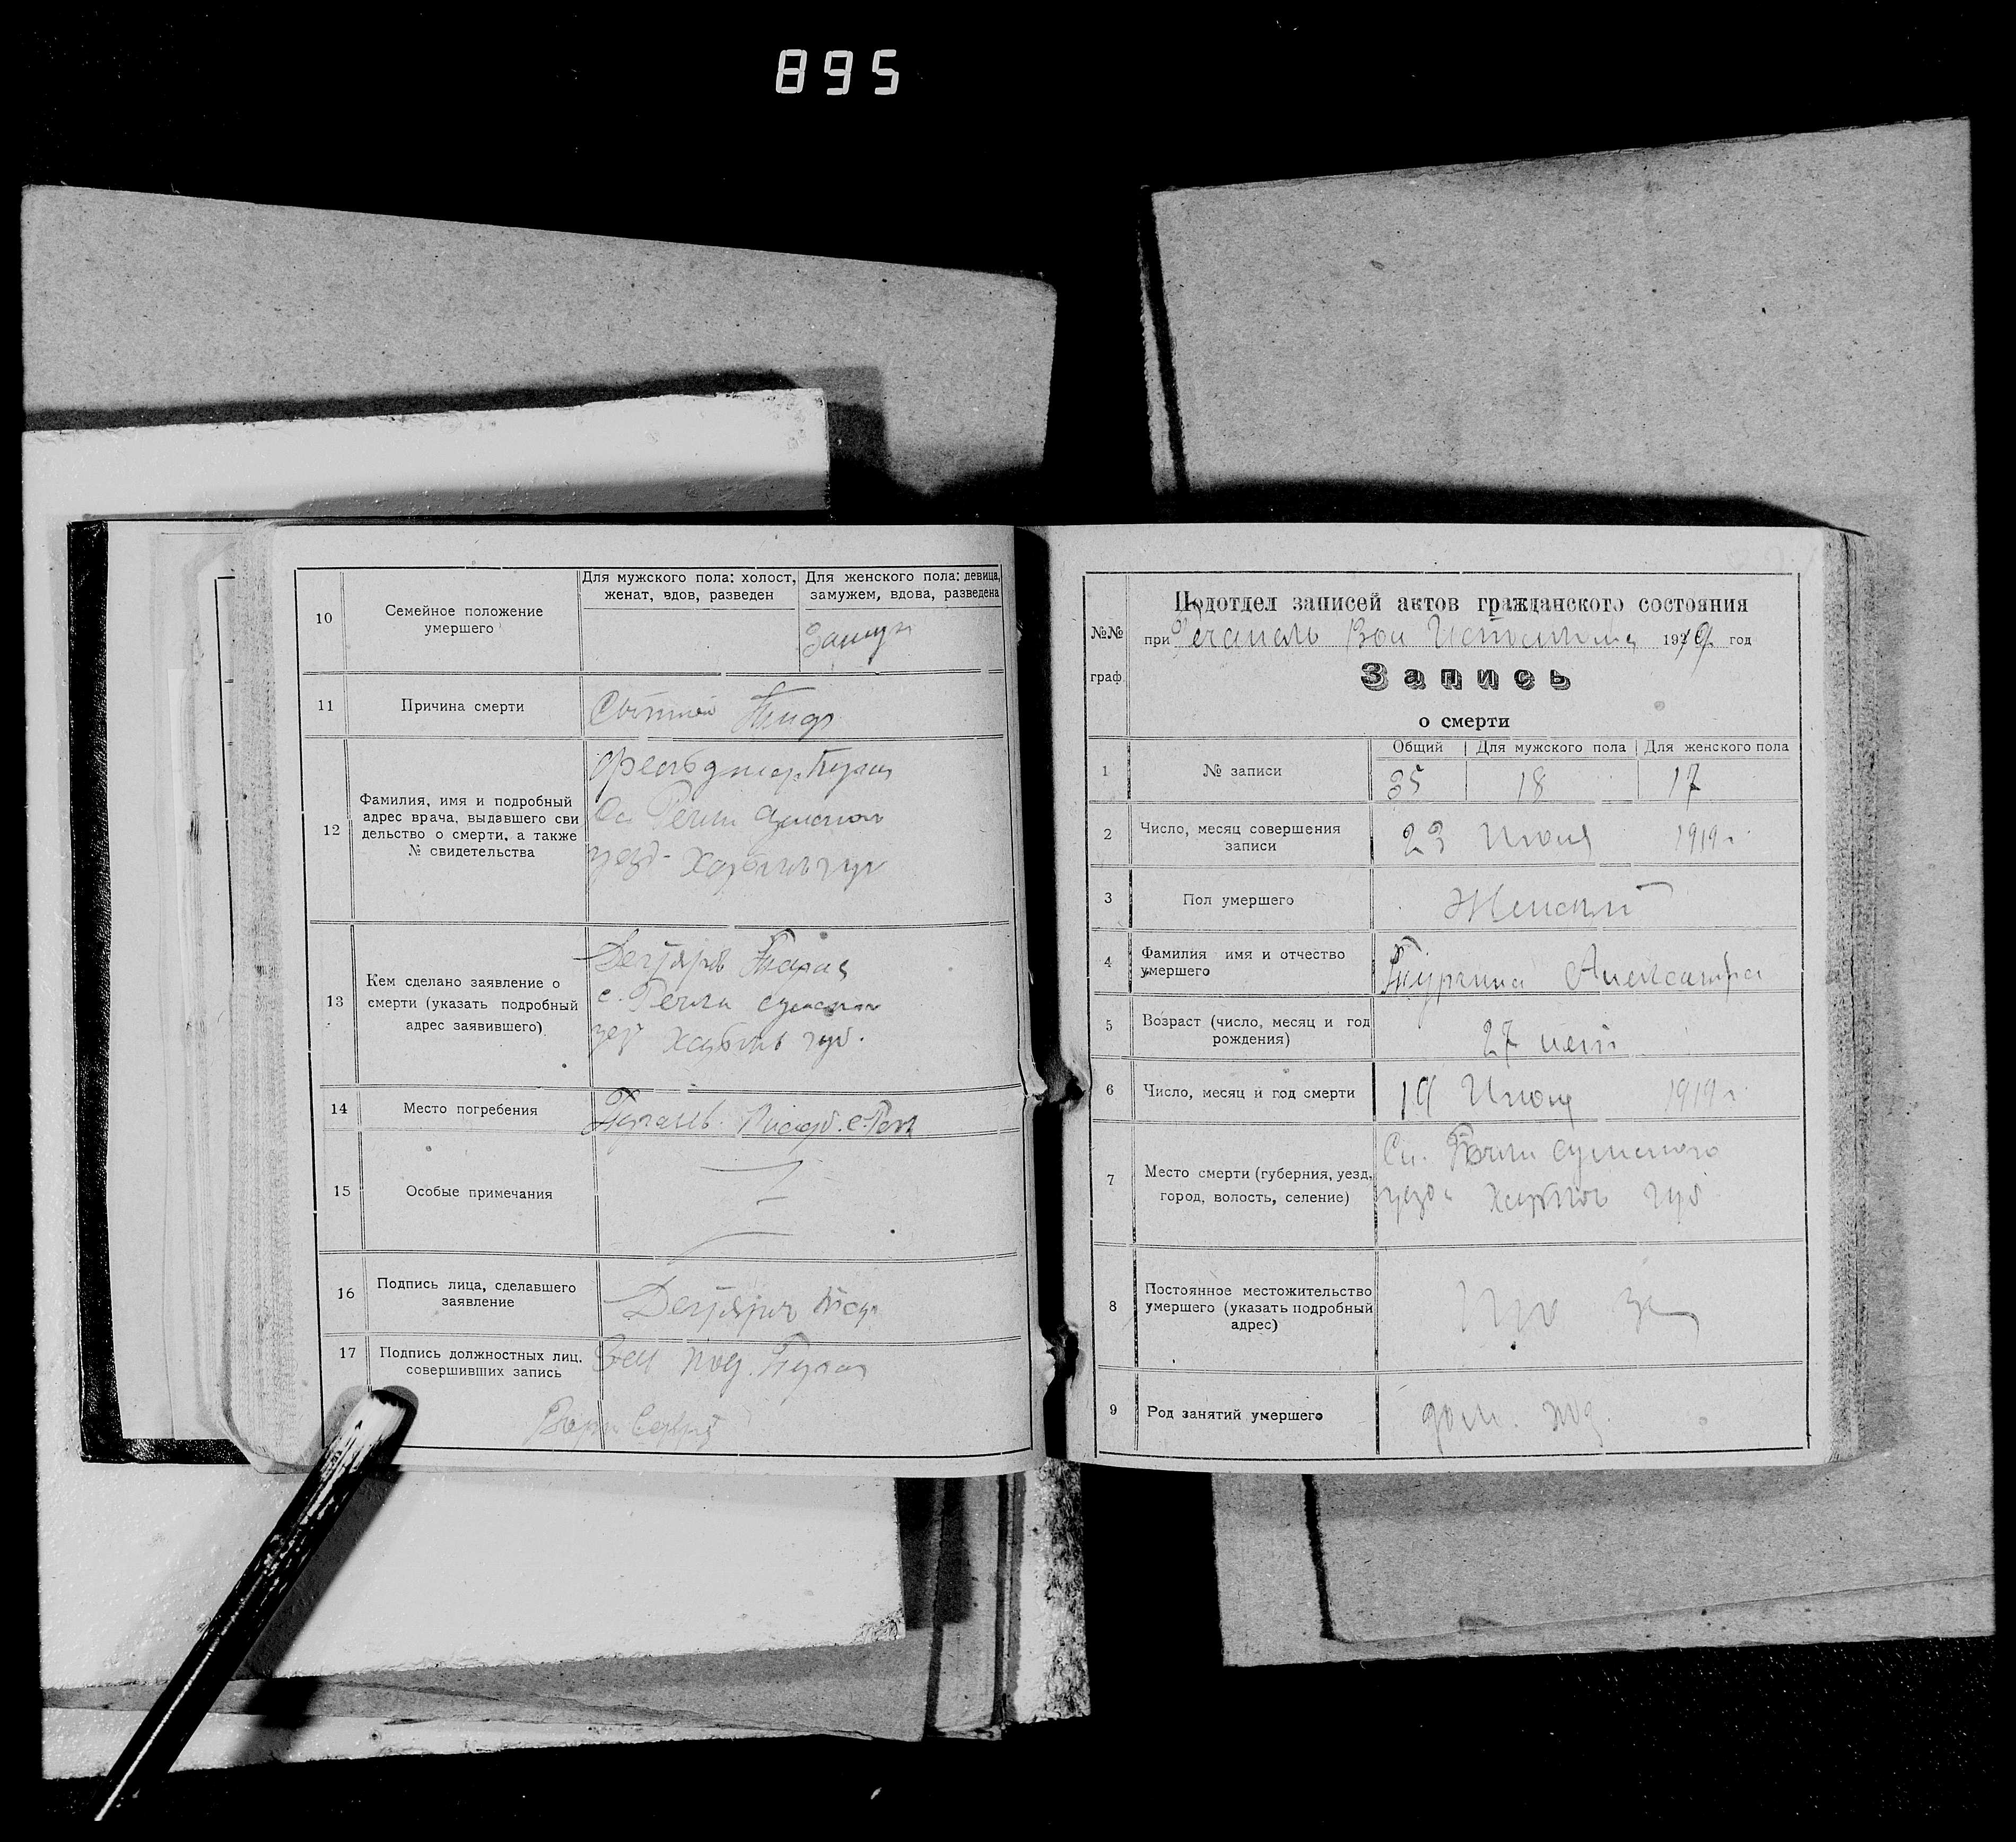 895
10
Семейное положение
умершего
Для мужского пола: холост,
женат, вдов, разведен
Для женского пола: девица,
замужем, вдова, разведена
Замуж
11
Причина смерти
тиф
12
Фамилия, имя и подробный
адрес врача, выдавшего сви
дельство о смерти, а также
№ свидетельства
Речки Сумског
уезд- Харьков губ
13
Кем сделано заявление о
смерти (указать подробный
адрес заявившего)
Дегтярев
с. Речки Сумског
Харьков губ.
14
Место погребения
15
Особые примечания
16
Подпись лица, сделавшего
заявление
Дегтярев
17
Подпись должностных лиц.
совершивших запись
Зав под.
№№
граф.
Подотдел записей актов гражданского состояния
при Вол 1919 год
Запись
о смерти
1
№ записи
Общий
Для мужского пола
Для женского пола
35
18
17
2
Число, месяц совершения
записи
23 Июля 1919 г
3
Пол умершего
Женский
4
Фамилия имя и отчество
умершего
Александра
5
Возраст (число, месяц и год
рождения)
27 лет
6
Число, месяц и год смерти
19 Июля 1919 г
7
Место смерти (губерния, уезд,
город, волость, селение)
Сл. Речки Сумского
уезда Харьков губ
8
Постоянное местожительство
умершего (указать подробный
адрес)
9
Род занятий умершего
дом. хоз.